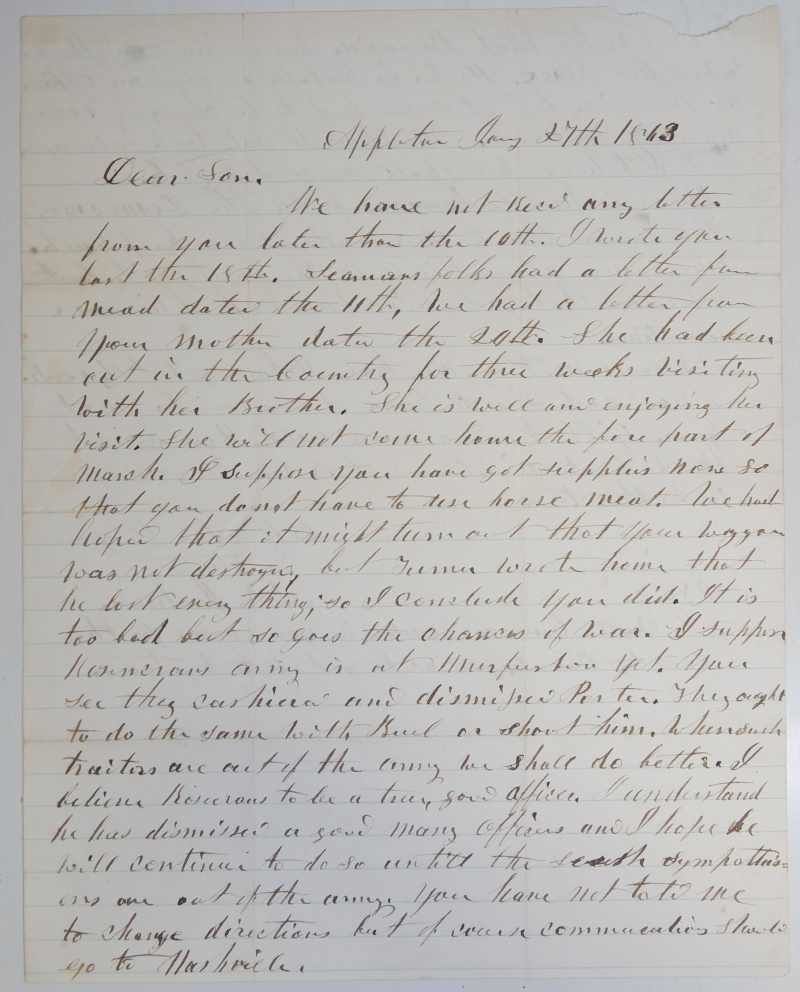 Appleton Jany 27th 1863
Dear Son.
We have not Recd any letter
from you later than the 10th. I wrote you
last the 18th. Seamans folks had a letter from
Mead dated the 11th, We had a letter from
your Mother dated the 20th. She had been
out in the Country for three weeks visiting
with her Brother. She is well and enjoying her
visit. She will not come home the fore part of
March. I suppose you have got supplies now so
that you do not have to use horse meat. We had
hoped that it might turn out that your waggon
was not destroyed, but Turner wrote home that
he lost every thing, so I conclude you did. It is
too bad but so goes the chances of war. I suppose
Rosencrans army is at yet. You
see they cashierd and dismissed Porter. They ought
to do the same with Buel or shoot him. When such
traitors are out of the army we shall do better. I
believe Rosecrans to be a true, good officer. I understand
he has dismissed a good many officers and I hope he
will continue to do so untill the south sympathis-
ers are out of the army. You have not told me
to change directions but of course communications should
go to Nashville.